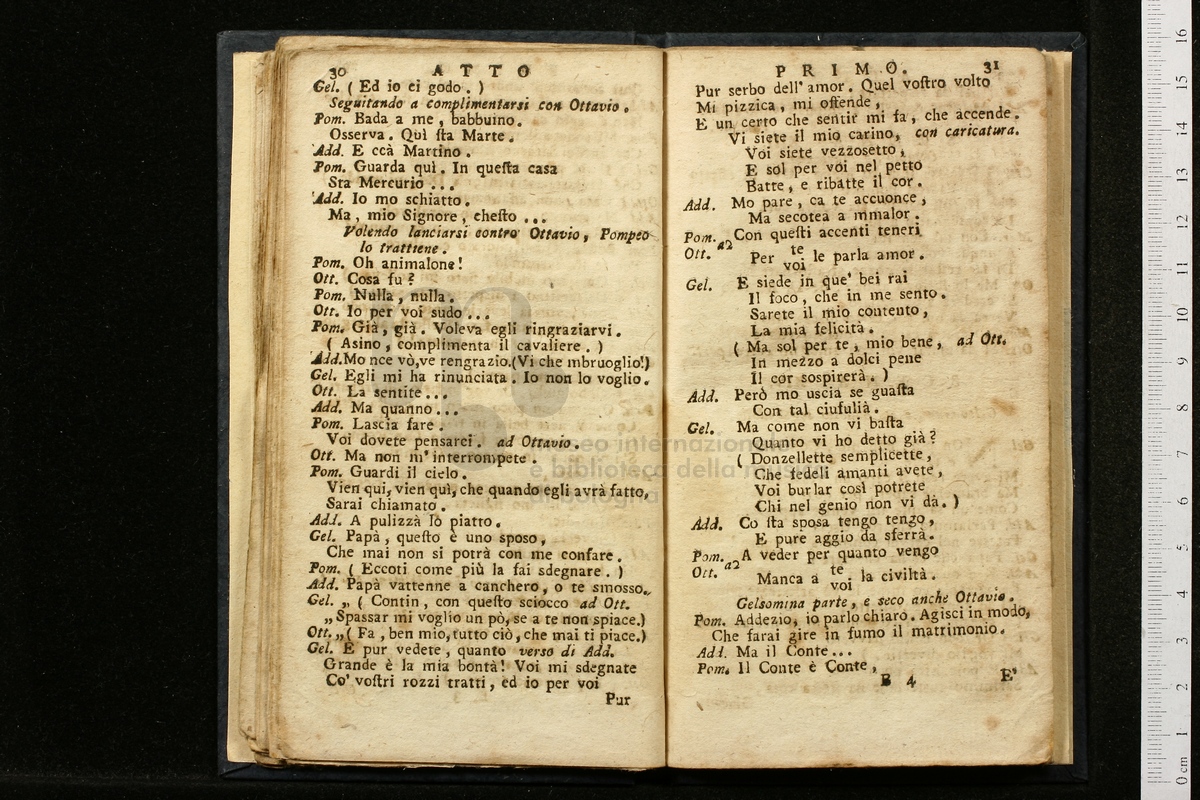 30 ATTO
Gel. ( Ed io ci godo . )
Seguitando a complimentarsi con Ottavio .
Pom. Bada a me , babbuino .
Osserva . Quì ſta Marte .
Add. E ccà Martino .
Pom. Guarda quì . In queſta casa
Sta Mercurio ...
Add. Io mo schiatto .
Ma , mio Signore , cheſto ...
Volendo lanciarsi contro Ottavio , Pompeo
lo trattiene .
Pom. Oh animalone !
Ott. Cosa fu ?
Pom. Nulla , nulla .
Ott. Io per voi sudo ...
Pom. Già , già . Voleva egli ringraziarvi .
( Asino , complimenta il cavaliere . )
Add. Mo nce vò, ve rengrazio. (Vi che mbruoglio!)
Gel. Egli mi ha rinunciata . Io non lo voglio .
Ott. La sentite ...
Add. Ma quanno ...
Pom. Lascia fare .
Voi dovete pensarci . ad Ottavio .
Ott. Ma non m' interrompete .
Pom. Guardi il cielo .
Vien qui, vien quì, che quando egli avrà fatto,
Sarai chiamato .
Add. A pulizzà lo piatto .
Gel. Papà , queſto è uno sposo ,
Che mai non si potrà con me confare .
Pom. ( Eccoti come più la fai sdegnare . )
Add. Papà vattenne a canchero , o te smosso .
Gel. „ ( Contin , con queſto sciocco ad Ott.
„ Spassar mi voglio un pò, se a te non spiace.)
Ott. „ ( Fa , ben mio, tutto ciò, che mai ti piace.)
Gel. E pur vedete , quanto verso di Add.
Grande è la mia bontà! Voi mi sdegnate
Co' voſtri rozzi tratti , ed io per voi
Pur
PRIMO. 31
Pur serbo dell' amor . Quel voſtro volto
Mi pizzica , mi offende ,
E un certo che sentir mi fa , che accende .
Vi siete il mio carino , con caricatura .
Voi siete vezzosetto ,
E sol per voi nel petto
Batte , e ribatte il cor .
Add. Mo pare , ca te accuonce ,
Ma secotea a mmalor .
Pom. a2 Con queſti accenti teneri
Ott. Per te voi le parla amor .
Gel. E siede in que' bei rai
Il foco , che in me sento .
Sarete il mio contento ,
La mia felicità .
( Ma sol per te , mio bene , ad Ott.
In mezzo a dolci pene
Il cor sospirerà . )
Add. Però mo uscia se guaſta
Con tal ciufulià .
Gel. Ma come non vi baſta
Quanto vi ho detto già ?
( Donzellette semplicette ,
Che fedeli amanti avete ,
Voi burlar così potrete
Chi nel genio non vi dà . )
Add. Co ſta sposa tengo tengo ,
E pure aggio da sferrà .
Pom. a2 A veder per quanto vengo
Ott. Manca a te voi la civiltà .
Gelsomina parte , e seco anche Ottavio .
Pom. Addezio, io parlo chiaro . Agisci in modo,
Che farai gire in fumo il matrimonio .
Add. Ma il Conte ...
Pom. Il Conte è Conte ,
B 4 E'